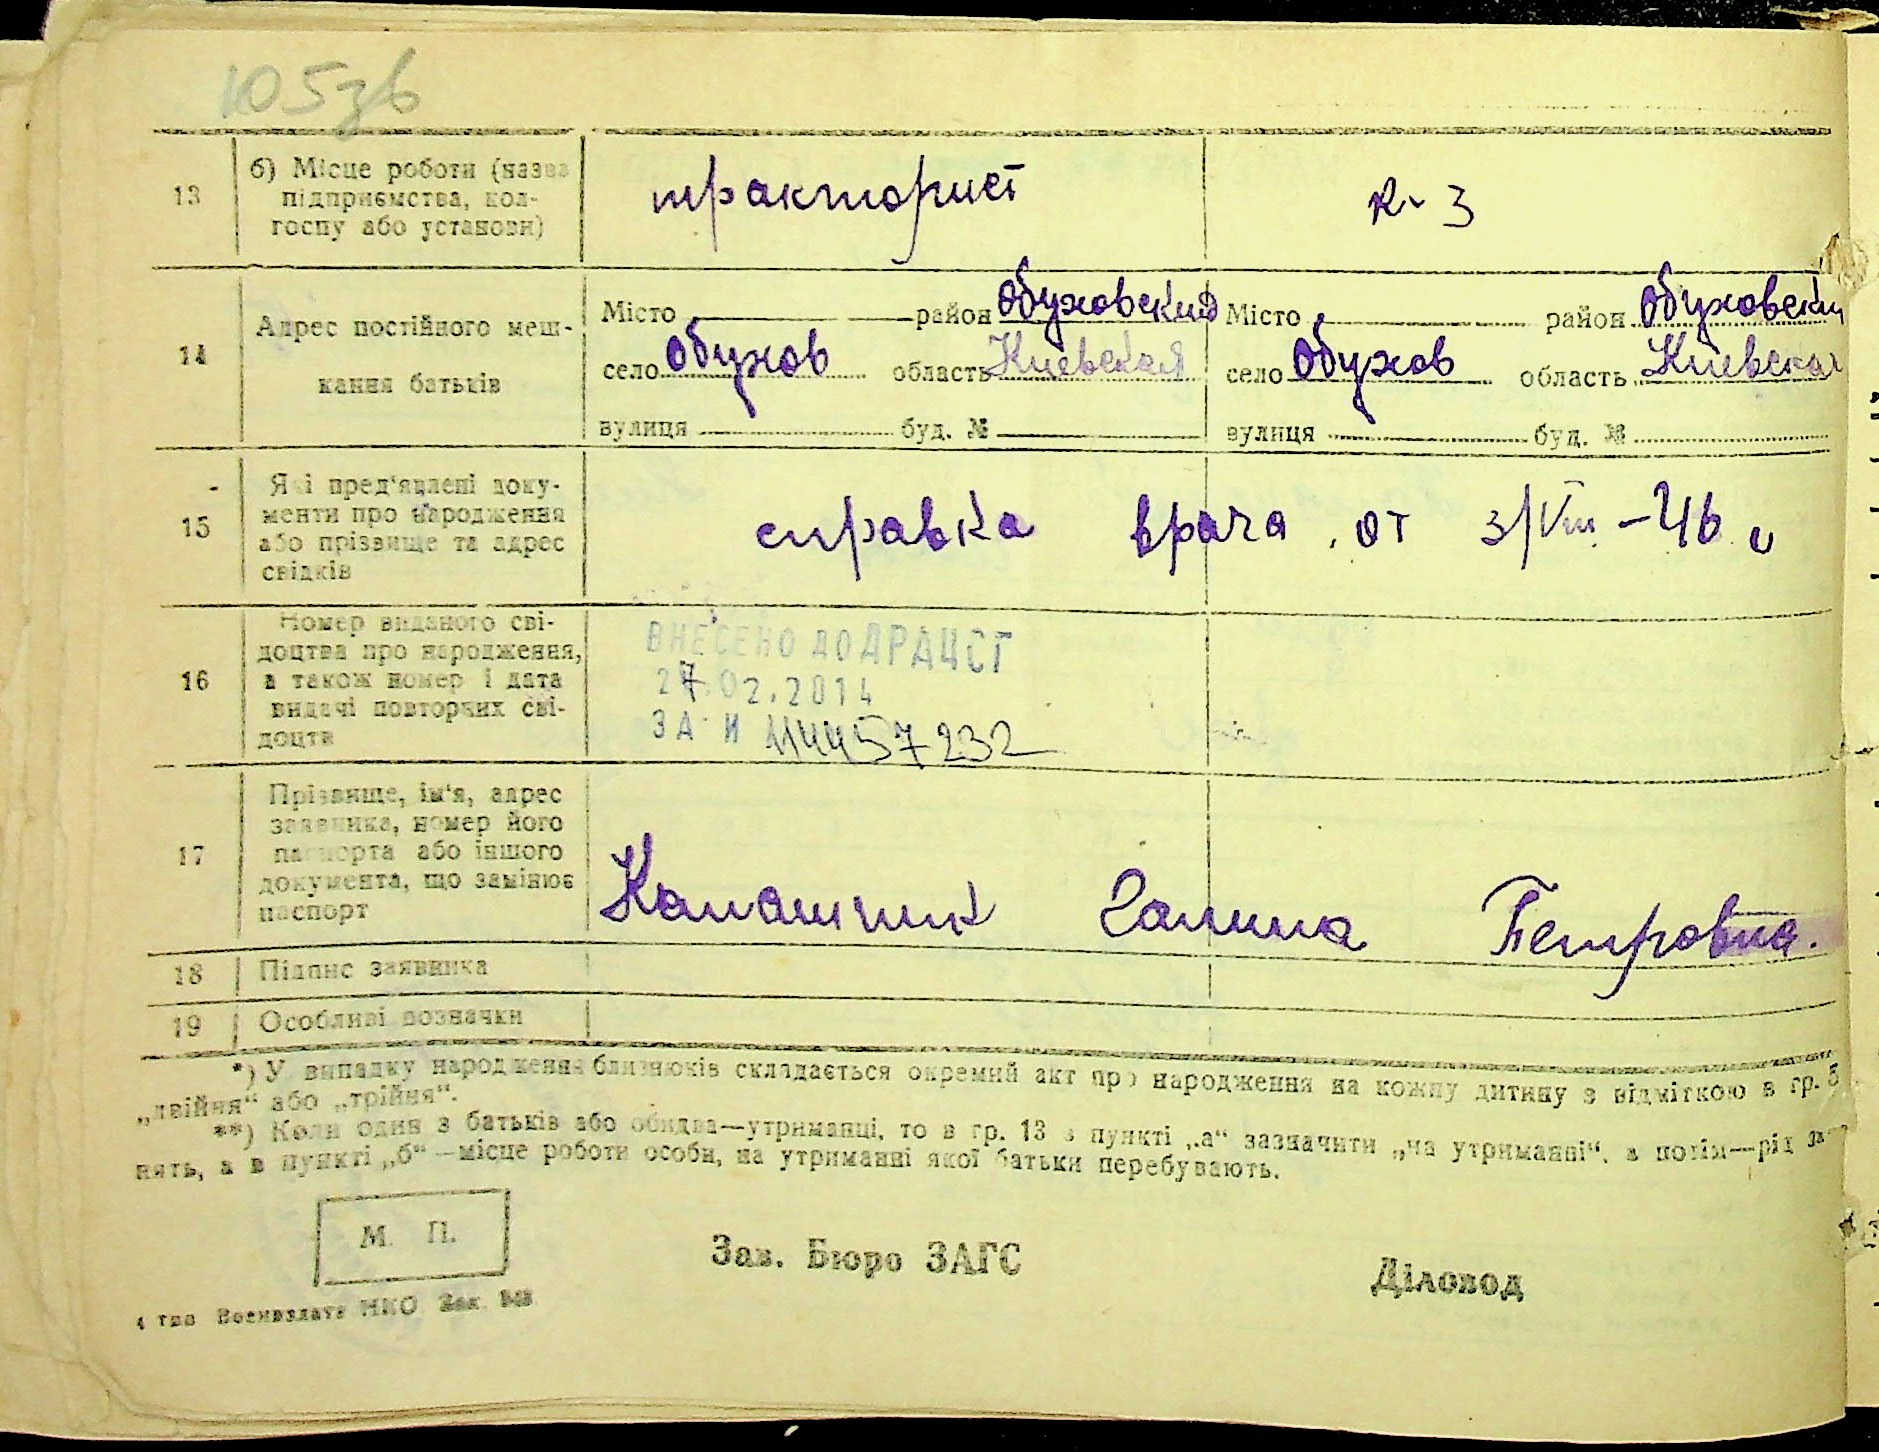 105зв
13
б) Місце роботи (назва
підприємства, кол-
госпу або установи)
тракторист
к-з
14
Адрес постійного меш-
кання батьків
Місто район Обуховский
село Обухов область Киевская
вулиця буд. №
Місто район Обуховский
село Обухов область Киевская
вулиця буд. №
15
Які пред'явлені доку-
менти про народження
або прізвище та адрес
свідків
справка врача от 3/VIII-46
16
Номер виданого сві-
доцтва про народження,
а також номер і дата
видачі повторних сві-
доцтв
ВНЕСЕНО ДО ДРАЦСГ
27.02.2014
ЗА № 114457232
17
Прізвище, ім'я, адрес
заявника, номер його
паспорта або іншого
документа, що замінює
паспорт
Галина Петровна.
18
Підпис заявника
19
Особливі позначки
*) У випадку народження близнюків складається окремий акт про народження на кожну дитину з відміткою в гр. 5
„двійня“ або „трійня“.
**) Коли один з батьків або обидва—утриманці, то в гр. 13 в пункті „а“ зазначити „на утриманні“, а потім—рід за-
нять, а в пункті „б“—місце роботи особи, на утриманні якої батьки перебувають.
М. П.
Зав. Бюро ЗАГС
Діловод
4 тип Воениздата НКО Зак.